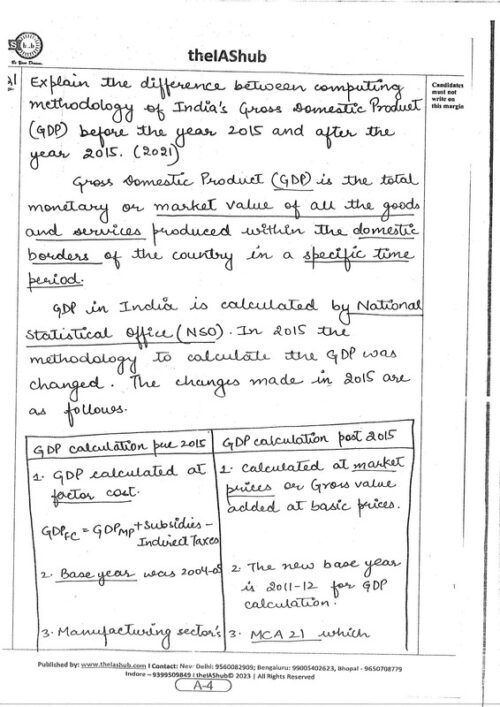 theIAShub
Be Your Dream.
Candidates
must not
write on
this margin
Explain the difference between computing
methodology of India's Gross Domestic Product
(GDP) before the year 2015 and after the
year 2015. (2021)
Gross Domestic Product (GDP) is the total
monetary or market value of all the goods
and services produced within the domestic
borders of the country in a specific time
period.
GDP in India is calculated by National
Statistical Office (NSO). In 2015 the
methodology to calculate the GDP was
changed. The changes made in 2015 are
as follows.
GDP calculation pre 2015
1. GDP calculated at
factor cost.
GDPFC = GDPMP + Subsidies -
Indirect Taxes
2. Base year was 2004-05
3. Manufacturing sector's
GDP calculation post 2015
1. Calculated at market
prices or Gross value
added at basic prices.
2. The new base year
is 2011-12 for GDP
calculation.
3. MCA 21 which
Published by: www.theiashub.com I Contact: New Delhi: 9560082909; Bengaluru: 99005402623, Bhopal - 9650708779
Indore – 9399509849 I theIAShub© 2023 | All Rights Reserved
A-4